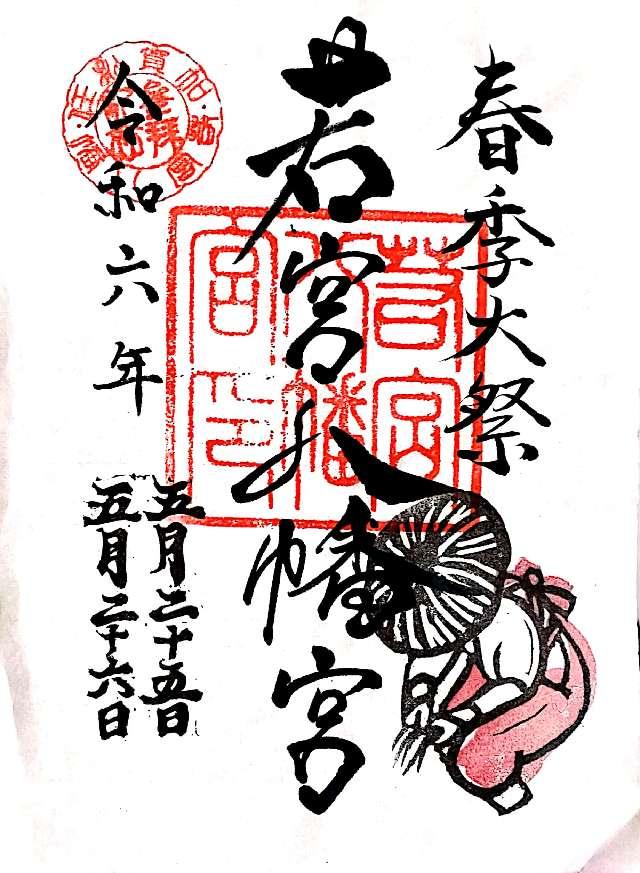 春季大祭
若宮八幡宮
若宮
八幡
宮印
令和六年
五月二十五日
五月二十六日